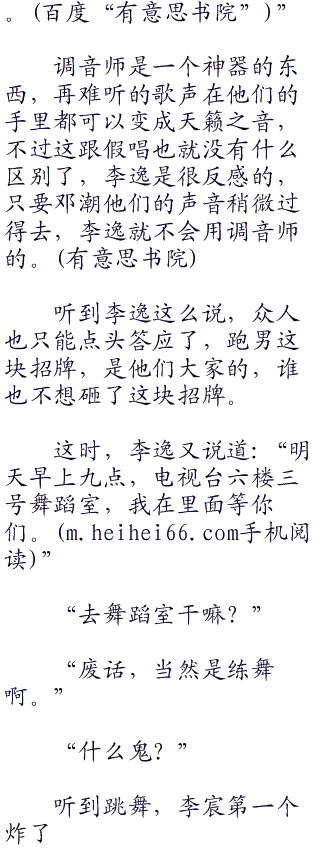 。(百度“有意思书院”)”
调音师是一个神器的东
西，再难听的歌声在他们的
手里都可以变成天籁之音，
不过这跟假唱也就没有什么
区别了，李逸是很反感的，
只要邓潮他们的声音稍微过
得去，李逸就不会用调音师
的。(有意思书院)
听到李逸这么说，众人
也只能点头答应了，跑男这
块招牌，是他们大家的，谁
也不想砸了这块招牌。
这时，李逸又说道：“明
天早上九点，电视台六楼三
号舞蹈室，我在里面等你
们。(m.heihei66.com手机阅
读)”
“去舞蹈室干嘛？”
“废话，当然是练舞
啊。”
“什么鬼？”
听到跳舞，李宸第一个
炸了